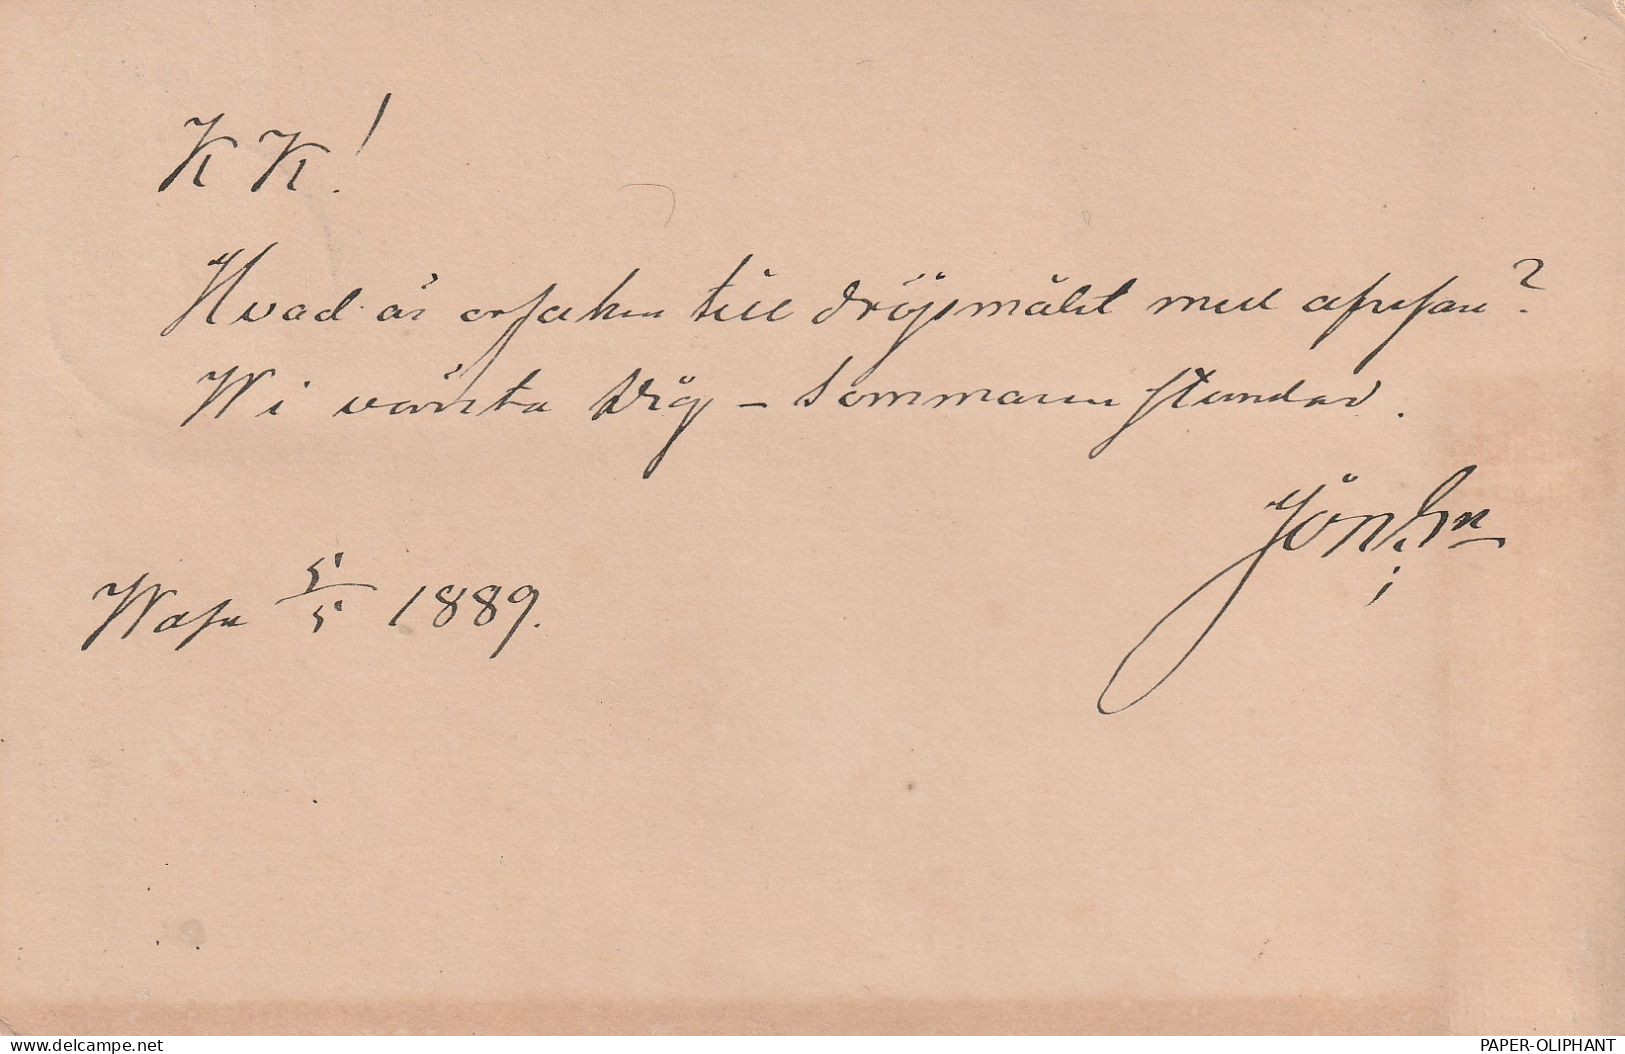 K K!
Hvad är orsaken till dröjsmålet med affären?
Wi vänta Dig – sommaren stundar.
Wasa 5/5 1889.
delcampe.net
PAPER-OLIPHANT